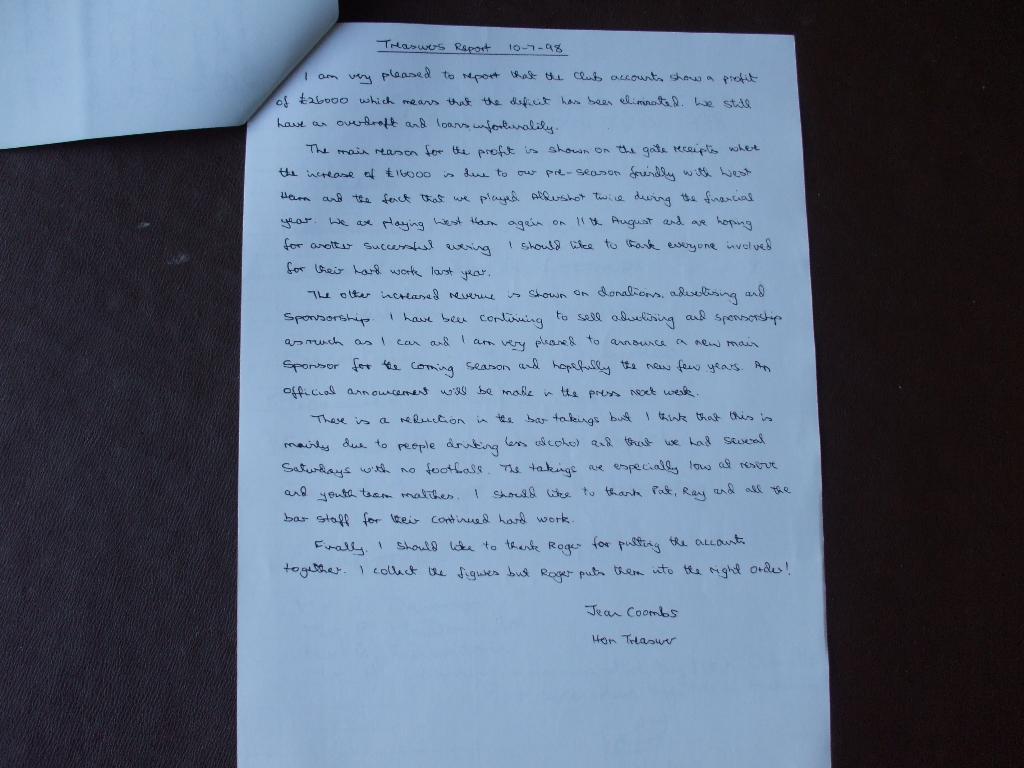 Treasurers Report 10-7-98
I am very pleased to report that the Club accounts show a profit
of £26000 which means that the deficit has been eliminated. We still
have an overdraft and loans unfortunately.
The main reason for the profit is shown on the gate receipts where
the increase of £16000 is due to our pre-season friendly with West
Ham and the fact that we played Aldershot twice during the financial
year. We are playing West Ham again on 11th August and are hoping
for another successful evening. I should like to thank everyone involved
for their hard work last year.
The other increased revenue is shown on donations, advertising and
sponsorship. I have been continuing to sell advertising and sponsorship
as much as I can and I am very pleased to announce a new main
sponsor for the coming season and hopefully the new few years. An
official announcement will be made in the press next week.
There is a reduction in the bar takings but I think that this is
mainly due to people drinking less alcohol and that we had several
Saturdays with no football. The takings are especially low at reserve
and youth team matches. I should like to thank Pat, Ray and all the
bar staff for their continued hard work.
Finally, I should like to thank Roger for putting the accounts
together. I collect the figures but Roger puts them into the right order!
Jean Coombs
Hon Treasurer